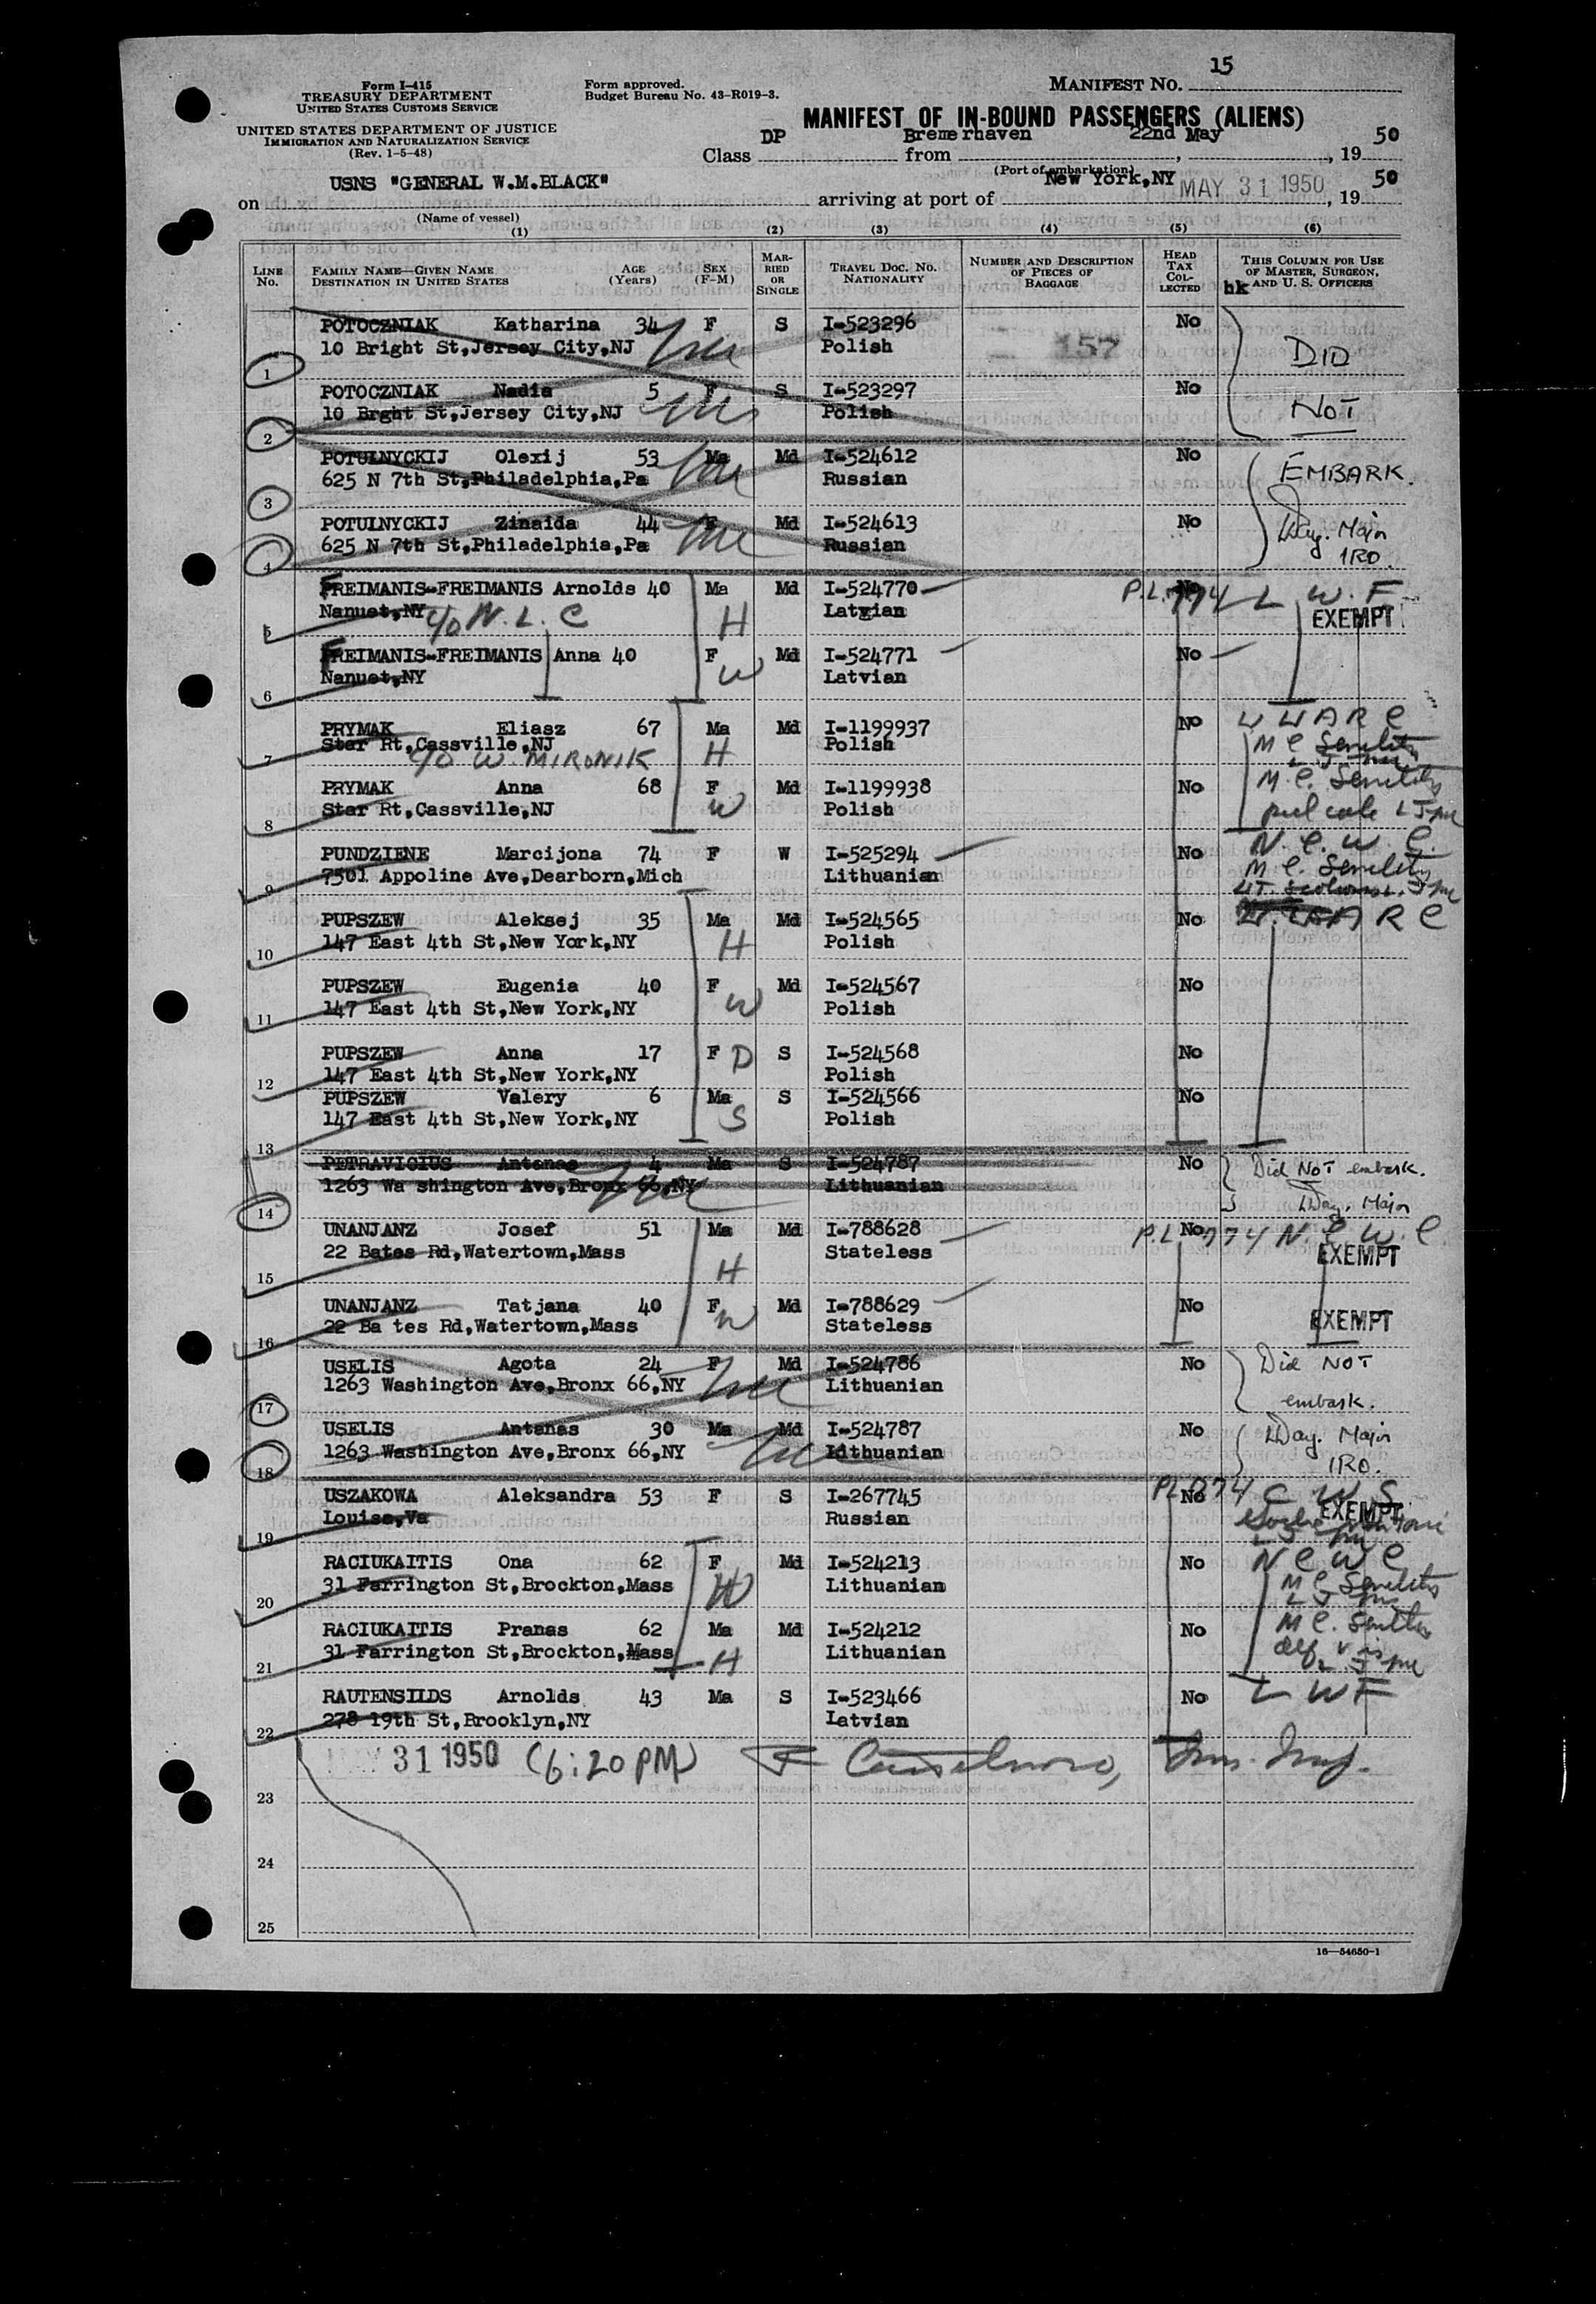 15
Form I-415
TREASURY DEPARTMENT
UNITED STATES CUSTOMS SERVICE
Form approved.
Budget Bureau No. 43-R019-3.
MANIFEST NO.
UNITED STATES DEPARTMENT OF JUSTICE
IMMIGRATION AND NATURALIZATION SERVICE
(Rev. 1-5-48)
MANIFEST OF IN-BOUND PASSENGERS (ALIENS)
Class DP from Bremerhaven 22nd May, 19 50
(Port of embarkation)
on USNS "GENERAL W.M.BLACK" arriving at port of New York,NY MAY 31 1950, 19 50
(Name of vessel)
(1) (2) (3) (4) (5) (6)
LINE No. FAMILY NAME—GIVEN NAME DESTINATION IN UNITED STATES AGE (Years) SEX (F-M) MARRIED OR SINGLE TRAVEL DOC. NO. NATIONALITY NUMBER AND DESCRIPTION OF PIECES OF BAGGAGE HEAD TAX COLLECTED THIS COLUMN FOR USE OF MASTER, SURGEON, AND U. S. OFFICERS
hk
POTOCZNIAK Katharina 34 F S I-523296 No
1 10 Bright St,Jersey City,NJ Polish 157 DID
POTOCZNIAK Nadia 5 F S I-523297 No
2 10 Brght St,Jersey City,NJ Polish NOT
POTULNYCKIJ Olexij 53 Ma Md I-524612 No
3 625 N 7th St,Philadelphia,Pa Russian EMBARK.
POTULNYCKIJ Zinaida 44 F Md I-524613 No
4 625 N 7th St,Philadelphia,Pa Russian Major
IRO.
FREIMANIS-FREIMANIS Arnolds 40 Ma Md I-524770 No P.L. 774 L W F
5 Nanuet,NY c/o N.L.C H Latvian EXEMPT
FREIMANIS-FREIMANIS Anna 40 F Md I-524771 No
6 Nanuet,NY W Latvian
PRYMAK Eliasz 67 Ma Md I-1199937 No W A R C
7 Star Rt,Cassville,NJ H Polish M C Senility
c/o W. MIRONIK
PRYMAK Anna 68 F Md I-1199938 No M.C. Senility
8 Star Rt,Cassville,NJ W Polish
PUNDZIENE Marcijona 74 F W I-525294 No N.C.W.C.
9 7501 Appoline Ave,Dearborn,Mich Lithuanian M C. Senility
PUPSZEW Aleksej 35 Ma Md I-524565 No A R C
10 147 East 4th St,New York,NY H Polish
PUPSZEW Eugenia 40 F Md I-524567 No
11 147 East 4th St,New York,NY W Polish
PUPSZEW Anna 17 F D S I-524568 No
12 147 East 4th St,New York,NY Polish
PUPSZEW Valery 6 Ma S I-524566 No
13 147 East 4th St,New York,NY S Polish
PETRAVICIUS Antanas 4 Ma S I-524787 No Did NOT embark.
14 1263 Wa shington Ave,Bronx 66,NY Lithuanian Major
UNANJANZ Josef 51 Ma Md I-788628 No P.L. 774 N.C.W.C.
15 22 Bates Rd,Watertown,Mass H Stateless EXEMPT
UNANJANZ Tatjana 40 F Md I-788629 No
16 22 Ba tes Rd,Watertown,Mass W Stateless EXEMPT
USELIS Agota 24 F Md I-524786 No Did NOT
17 1263 Washington Ave,Bronx 66,NY Lithuanian embark.
USELIS Antanas 30 Ma Md I-524787 No Major
18 1263 Washington Ave,Bronx 66,NY Lithuanian IRO.
USZAKOWA Aleksandra 53 F S I-267745 No PL 774 C W S
19 Louisa,Va Russian EXEMPT
RACIUKAITIS Ona 62 F Md I-524213 No N C W C
20 31 Farrington St,Brockton,Mass W Lithuanian M C Senility
RACIUKAITIS Pranas 62 Ma Md I-524212 No M C. Senility
21 31 Farrington St,Brockton,Mass H Lithuanian
RAUTENSILDS Arnolds 43 Ma S I-523466 No L W F
22 278 19th St,Brooklyn,NY Latvian
31 1950 (6:20 PM) Imm. Insp.
23
24
25
16—54650-1